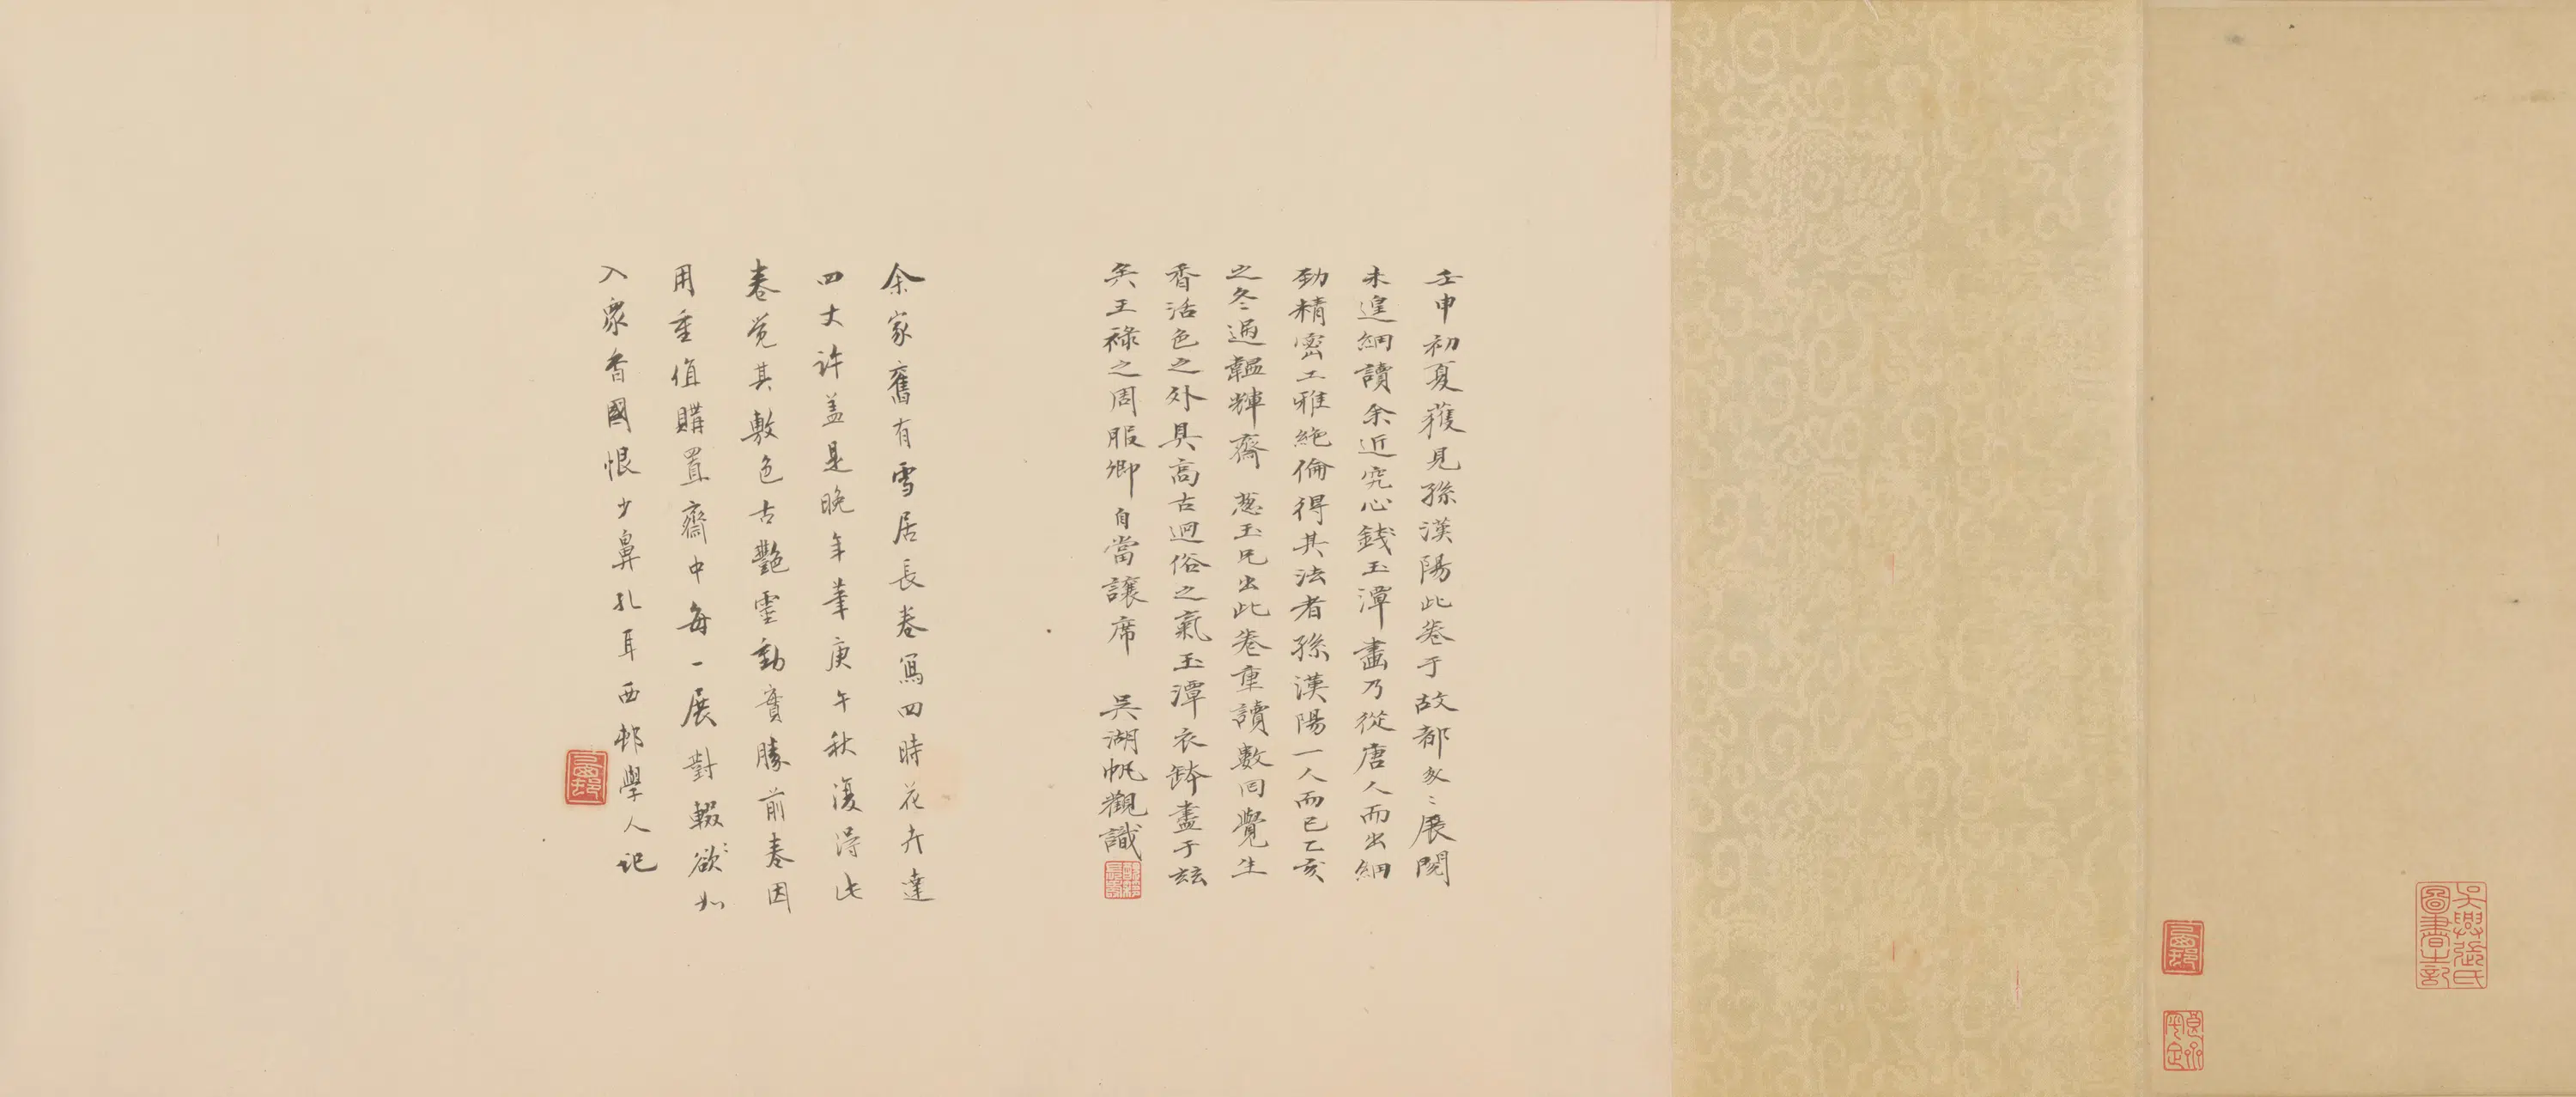 吳興張氏
圖書之記
壬申初夏獲見孫漢陽此卷于故都匆〻展閱
未遑細讀余近究心錢玉潭畫乃從唐人而出細
勁精密工雅絶倫得其法者孫漢陽一人而已乙亥
之冬過韞輝齋 蔥玉兄出此卷重讀數回覺生
香活色之外具高古迥俗之氣玉潭衣鉢盡于茲
矣王祿之周服卿自當讓席 吳湖帆觀識
余家舊有雪居長卷寫四時花卉達
四丈許蓋是晚年筆庚午秋復得此
卷覺其敷色古艷靈動實勝前卷因
用重值購置齋中每一展對輟〻欲如
入衆香國恨少鼻孔耳西邨學人記